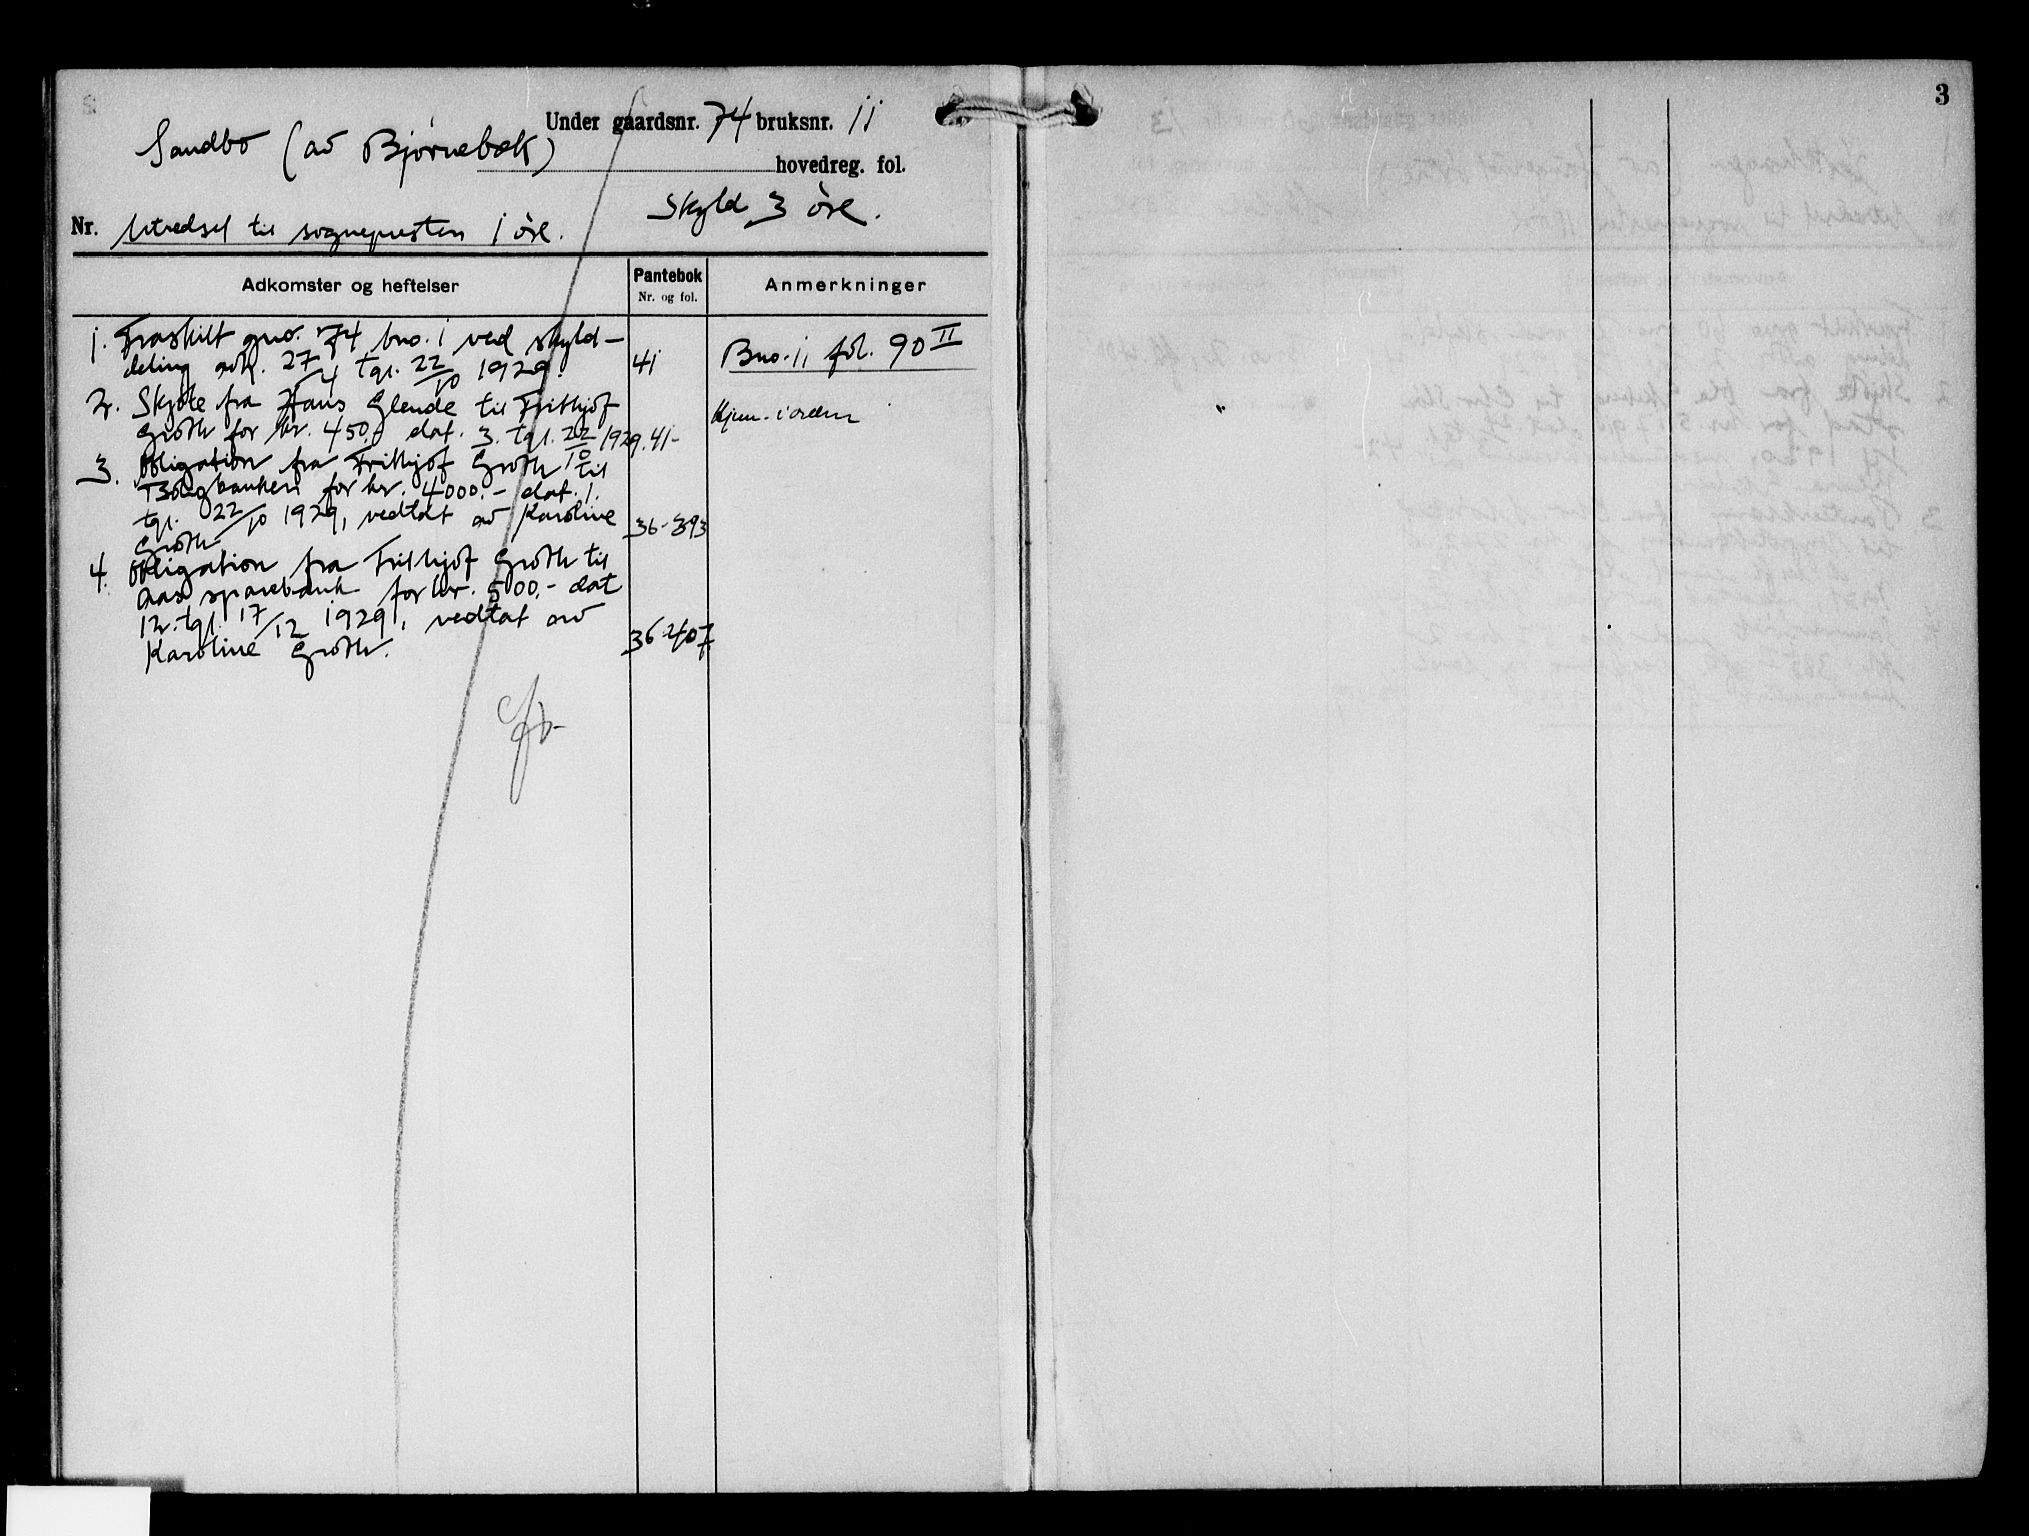 Under gaardsnr. 74 bruksnr. 11
Sandbo (av Bjørnebek)
hovedreg. fol.
Skyld 3 øre.
Nr. Utredsel til sognepresten 1 øre.
Adkomster og heftelser
Pantebok
Nr. og fol.
Anmerkninger
1. Fraskilt gno. 74 bno. 1 ved skyld-
deling avh. 27/4 tgl. 22/10 1929. 41
Bno. 11 fol. 90 II
2. Skjøte fra Hans Glende til Frithjof
Groth for kr. 450.- dat. 3. tgl. 22/10 1929. 41-
Hjem. i orden
3. Obligation fra Frithjof Groth til
Boligbanken for kr. 4000.- dat. 1.
tgl. 22/10 1929, vedtat av Karoline
Groth 36-393
4. Obligation fra Frithjof Groth til
Aas sparebank for kr. 500.- dat
12. tgl. 17/12 1929, vedtat av
Karoline Groth. 36-407
3